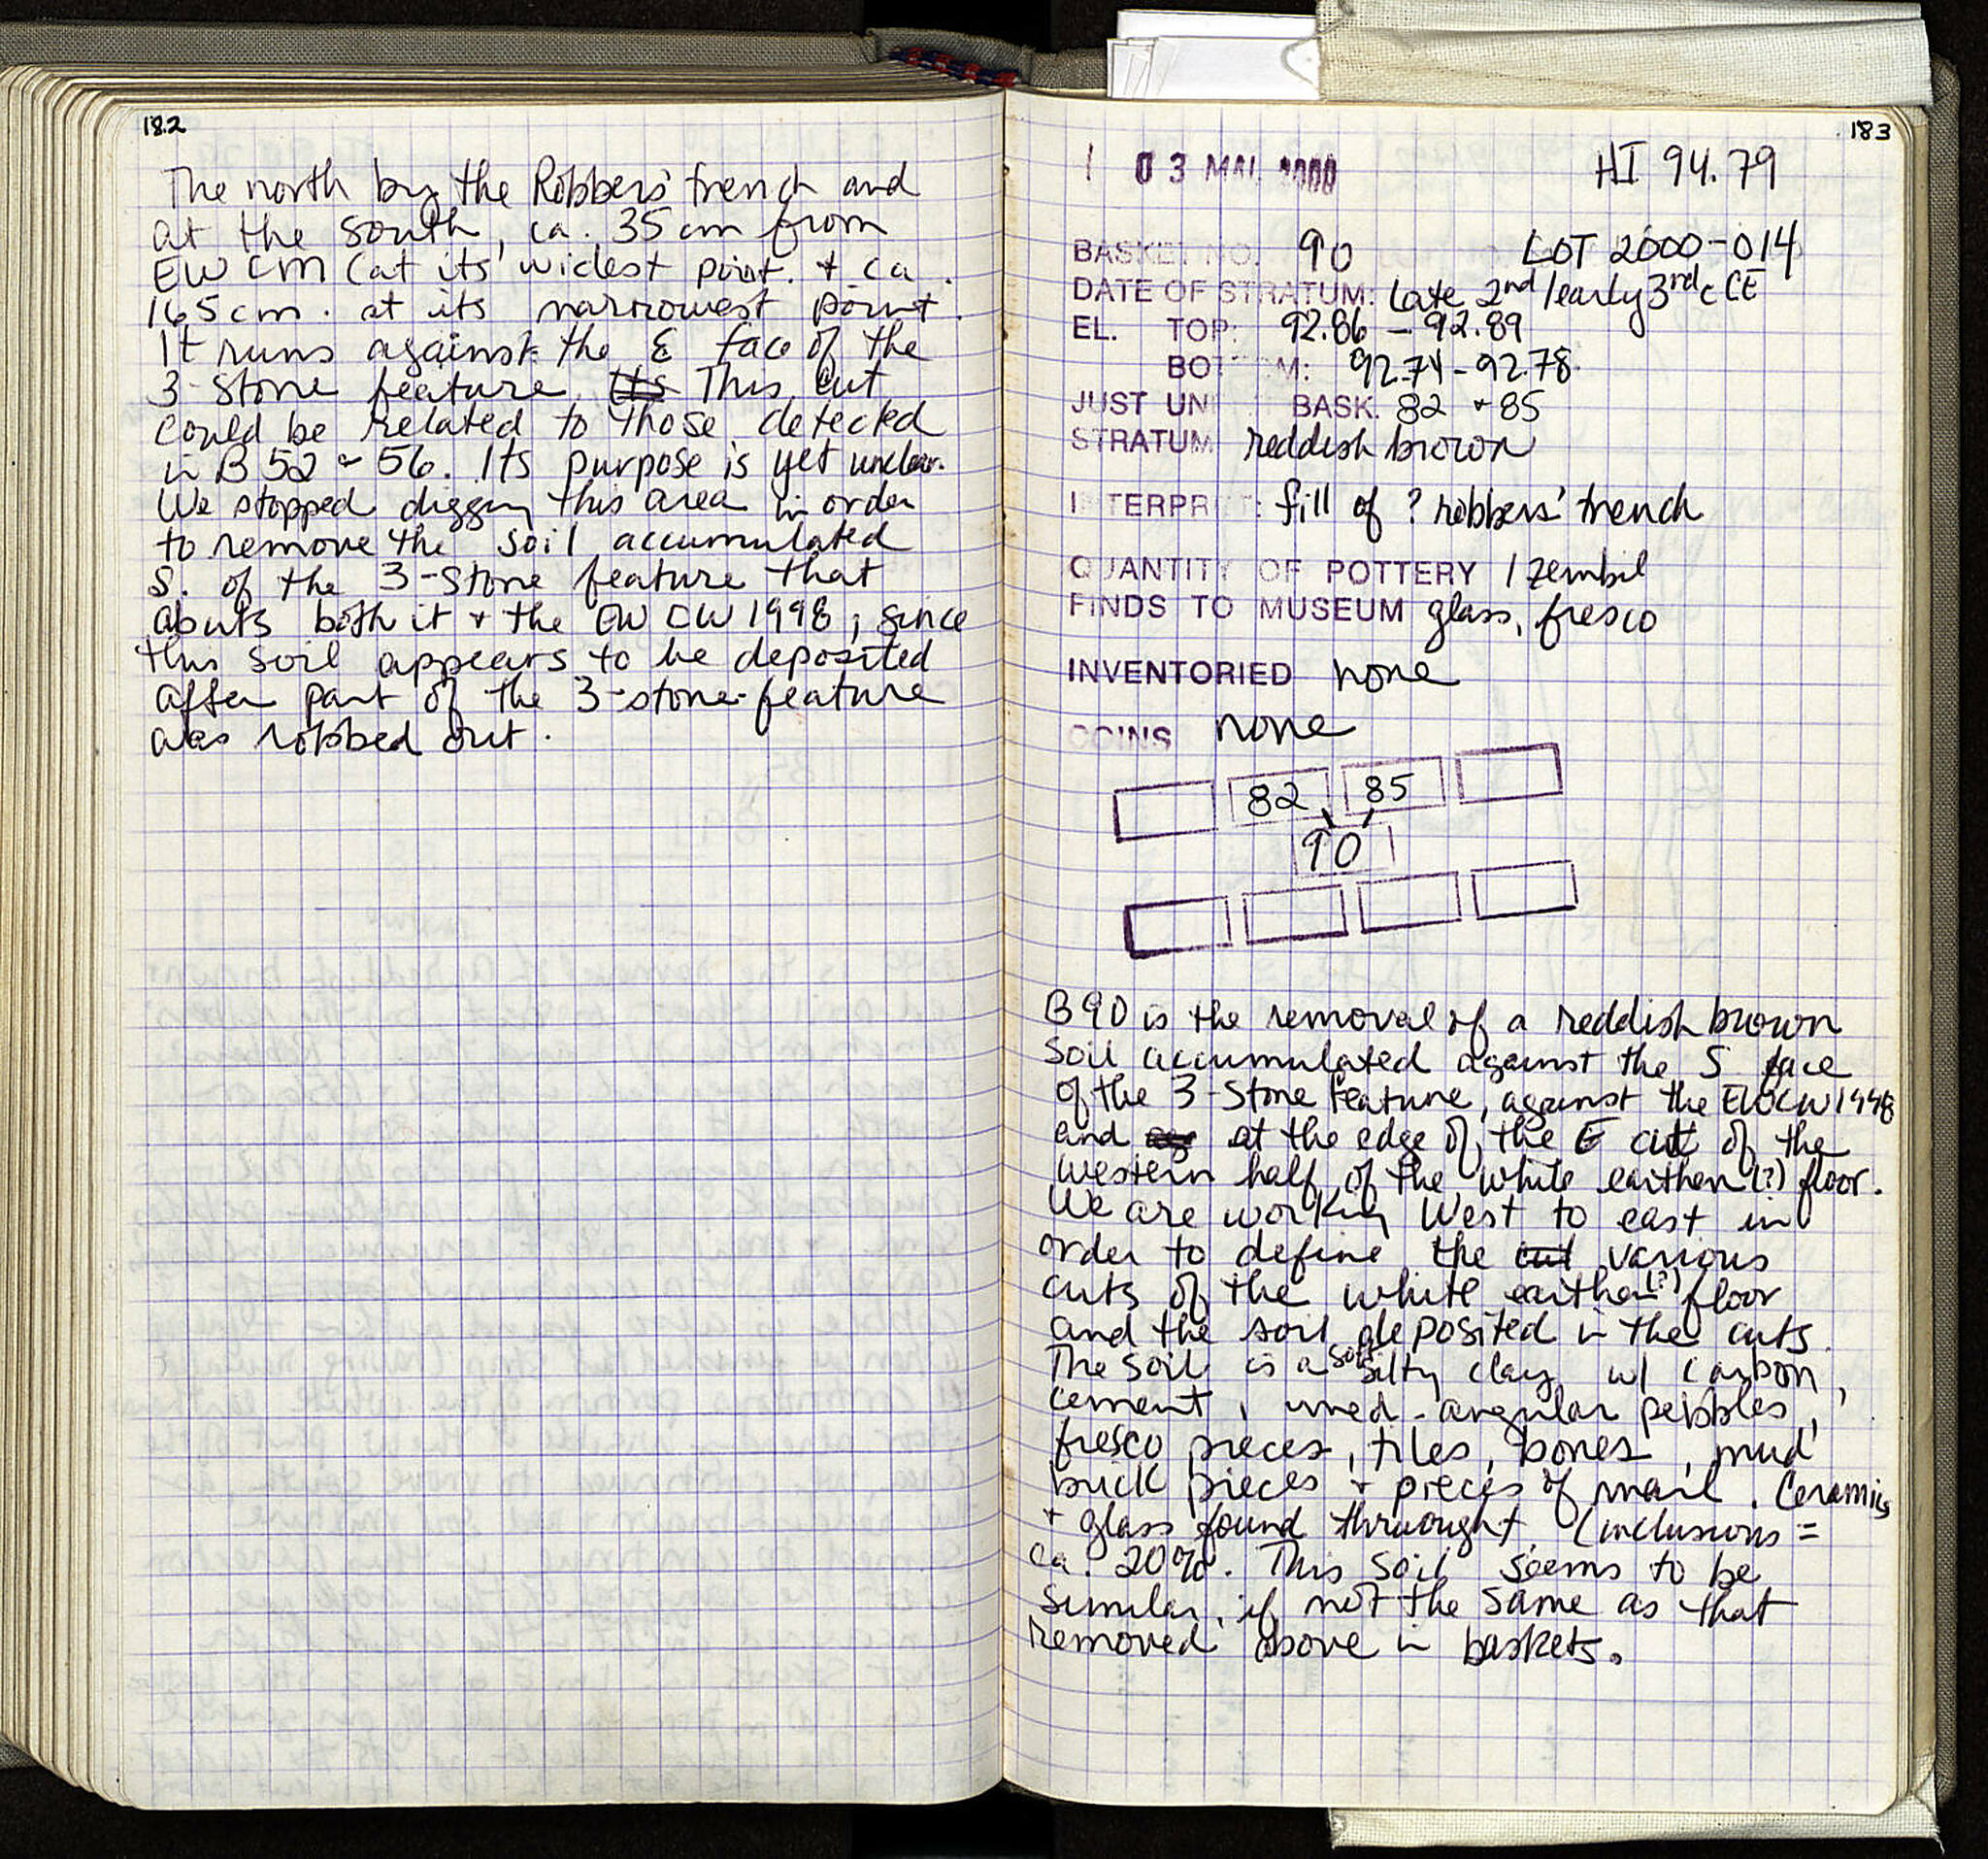 182
The north by the Robbers' trench and
at the south, ca. 35 cm from
EW CM (at its widest point. + ca.
165cm. at its narrowest point.
It runs against the E face of the
3-stone feature. Its This cut
could be related to those detected
in B 52 + 56. Its purpose is yet unclear.
We stopped digging this area in order
to remove the soil accumulated
S. of the 3-stone feature that
abuts both it + the EW CW 1998; since
this soil appears to be deposited
after part of the 3-stone-feature
was robbed out.
183
03 MAI 2000
HI 94.79
BASKET NO. 90 LOT 2000-014
DATE OF STRATUM: Late 2nd/early 3rd c CE
EL. TOP: 92.86 - 92.89
BOTTOM: 92.74-92.78
JUST UN BASK. 82 + 85
STRATUM reddish brown
INTERPRET: fill of ? robbers' trench
QUANTITY OF POTTERY 1 zembil
FINDS TO MUSEUM glass, fresco
INVENTORIED none
COINS none
82 85
90
B90 is the removal of a reddish brown
soil accumulated against the S face
of the 3-Stone Feature, against the EW CW 1998
and at the edge of the E cut of the
western half of the white earthen (?) floor.
We are working West to east in
order to define the cut various
cuts of the white earthen (?) floor
and the soil deposited in the cuts.
The soil is a soft silty clay w/ carbon,
cement, med-angular pebbles,
fresco pieces, tiles, bones, mud
brick pieces + pieces of marl. Ceramics
+ glass found throught (inclusions =
ca. 20%. This soil seems to be
similar, if not the same as that
removed above in baskets.